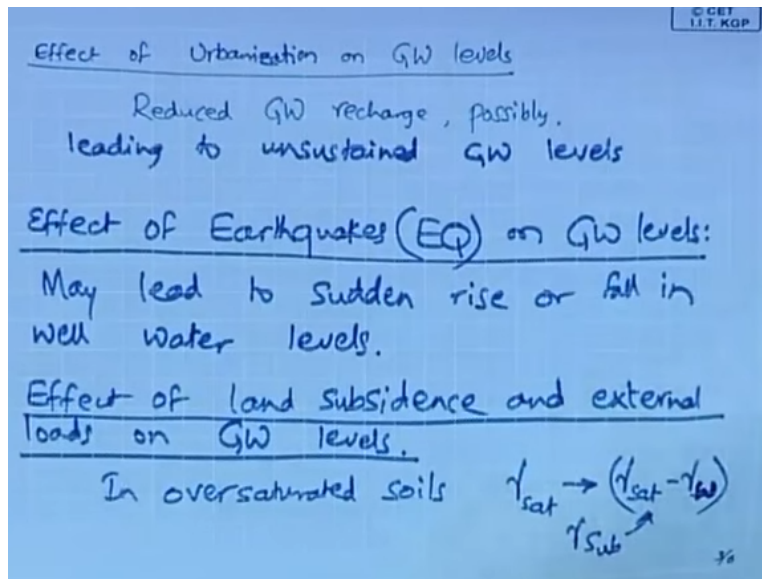 © CET
I.I.T. KGP
Effect of Urbanisation on GW levels
Reduced GW recharge, possibly.
leading to unsustained GW levels
Effect of Earthquakes (EQ) on GW levels:
May lead to sudden rise or fall in
well water levels.
Effect of land subsidence and external
loads on GW levels.
In oversaturated soils γsat → (γsat - γw)
γsub